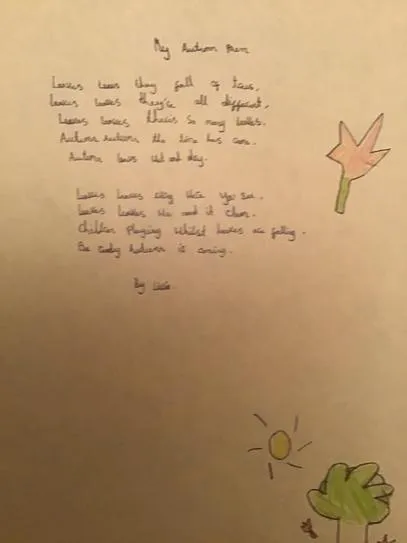 My Autumn Poem
Leaves leaves they fall of trees,
leaves leaves they're all different,
Leaves leaves there's so many leaves.
Autumn Autumn the time has come.
Autumn leaves and day.
Leaves leaves every you see.
leaves leaves and it
Children Playing Whilst leaves are falling.
Be ready Autumn is coming.
By